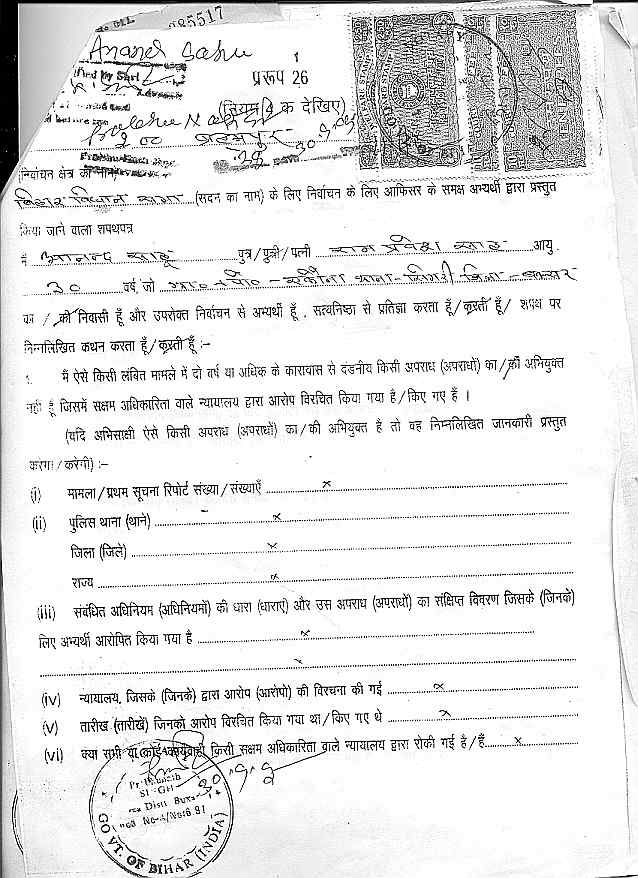 85517
Anand Sahu
1
प्ररूप 26
(नियम 4 क देखिए)
200 डुमरांव
निर्वाचन क्षेत्र का नाम
बिहार विधान सभा (सदन का नाम) के लिए निर्वाचन के लिए आफिसर के समक्ष अभ्यर्थी द्वारा प्रस्तुत
किया जाने वाला शपथपत्र
मैं आनन्द साहू पुत्र/पुत्री/पत्नी राम प्रवेश साह आयु
30 वर्ष, जो ग्रा० + पो० - एकौना थाना - सिमरी जिला - बक्सर
का / की निवासी हूँ और उपरोक्त निर्वाचन से अभ्यर्थी हूँ , सत्यनिष्ठा से प्रतिज्ञा करता हूँ/करती हूँ/ शपथ पर
निम्नलिखित कथन करता हूँ/करती हूँ :-
मैं ऐसे किसी लंबित मामले में दो वर्ष या अधिक के कारावास से दंडनीय किसी अपराध (अपराधों) का/की अभियुक्त
नहीं हूँ जिसमें सक्षम अधिकारिता वाले न्यायालय द्वारा आरोप विरचित किया गया है/किए गए हैं ।
(यदि अभिसाक्षी ऐसे किसी अपराध (अपराधों) का/की अभियुक्त है तो वह निम्नलिखित जानकारी प्रस्तुत
करेगा/करेगी) :-
(i) मामला/प्रथम सूचना रिपोर्ट संख्या/संख्याएँ ........ x ........
(ii) पुलिस थाना (थाने) ........ x ........
जिला (जिले) ........ x ........
राज्य ........ x ........
(iii) संबंधित अधिनियम (अधिनियमों) की धारा (धाराएं) और उस अपराध (अपराधों) का संक्षिप्त विवरण जिसके (जिनके)
लिए अभ्यर्थी आरोपित किया गया है ........ x ........
........ x ........
(iv) न्यायालय, जिसके (जिनके) द्वारा आरोप (आरोपों) की विरचना की गई ........ x ........
(v) तारीख (तारीखें) जिनको आरोप विरचित किया गया था/किए गए थे ........ x ........
(vi) क्या सभी या कोई कार्यवाही किसी सक्षम अधिकारिता वाले न्यायालय द्वारा रोकी गई है/हैं ..... x .....
GOVT. OF BIHAR (INDIA)